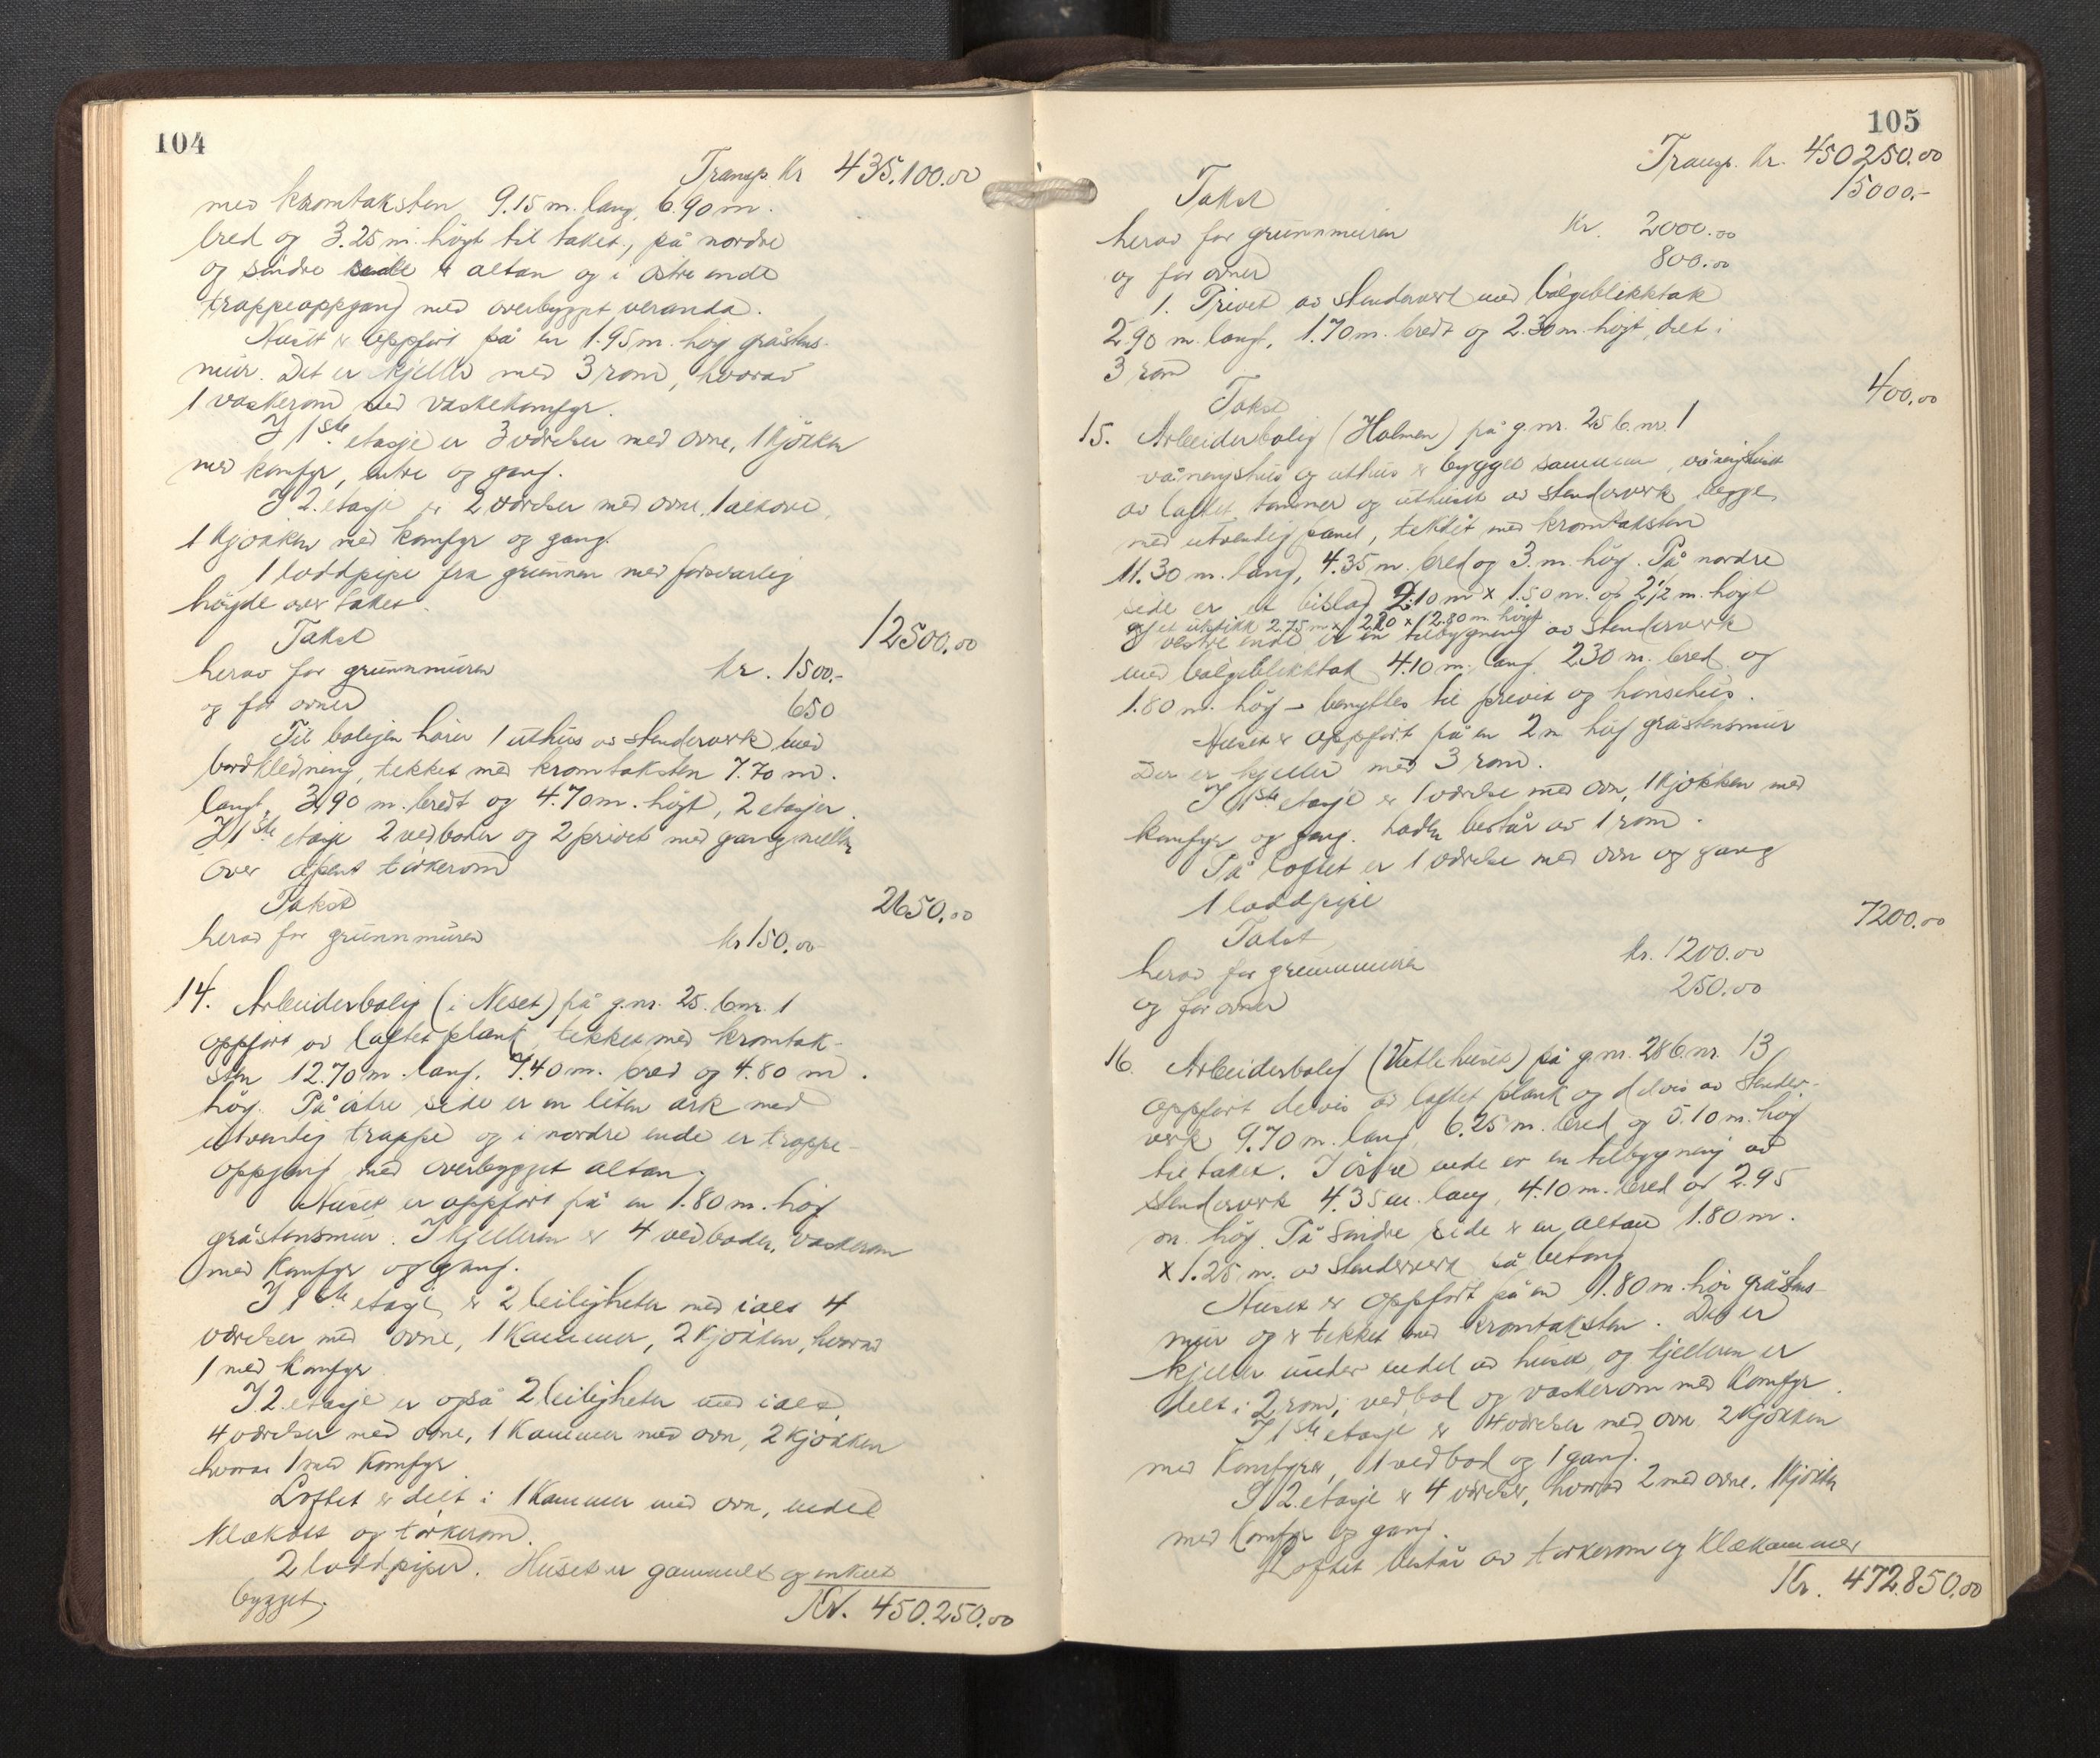 104
Transp. Kr 435.100.00
med kromtaksten 9.15 m. lang, 6.90 m.
bred og 3.25 m. høgt til taket, på nordre
og søndre side er altan og i østre ende
trappeoppgang med overbygget veranda.
Huset er oppført på en 1.95 m. høg gråstens-
mur. Det er kjeller med 3 rom, hvorav
1 vaskerom med vaskekomfyr.
I 1ste etasje er 3 værelser med ovne, 1 kjøkken
med komfyr, entre og gang.
I 2. etasje er 2 værelser med ovne, 1 alkove,
1 kjøkken med komfyr og gang.
1 loddpipe fra grunnen med forsvarlig
høgde over taket.
Takst 12500.00
herav for grunnmuren kr. 1500.-
og for ovner 650
Til boligen hører 1 uthus av stenderverk med
bordkledning, tekket med kromtaksten 7.70 m.
langt, 3.90 m. bredt og 4.70 m. høgt, 2 etasjer.
I 1ste etasje 2 vedboder og 2 privet med gang mellem
over åpent tørkerom
Takst 2650.00
herav for grunnmuren kr 150.00
14. Arbeiderbolig (i Neset) på g.nr. 25. b.nr. 1
oppført av laftet plank, tekket med kromtak-
sten 12.70 m. lang, 7.40 m. bred og 4.80 m.
høg. På østre side er en liten ark med
utvendig trappe og i nordre ende er trappe-
oppgang med overbygget altan.
Huset er oppført på en 1.80 m. høg
gråstensmur. I kjelleren er 4 vedboder, vaskerom
med komfyr og gang.
I 1ste etasje er 2 leiligheter med ialt 4
værelser med ovne, 1 kammer, 2 kjøkken, hvorav
1 med komfyr
I 2. etasje er også 2 leiligheter med ialt
4 værelser med ovne, 1 kammer med ovn, 2 kjøkken
hvorav 1 med komfyr
Loftet er delt i 1 kammer med ovn, endel
klækott og tørkerom.
2 loddpiper. Huset er gammelt og enkelt
bygget. Kr. 450.250.00
105
Transp. kr. 450250.00
Takst 15000.-
herav for grunnmuren Kr. 2000.00
og for ovner 800.00
1. Privet av stenderverk med bølgeblikktak
2.90 m. langt, 1.70 m. bredt og 2.30 m. høgt, delt i
3 rom
Takst 400.00
15. Arbeiderbolig (Holmen) på g.nr. 25 b.nr. 1
våningshus og uthus er bygget sammen, våningshuset
av laftet tømmer og uthuset av stenderverk begge
med utvendig panel, tekket med kromtaksten
11.30 m. lang, 4.35 m. bred og 3. m. høg. På nordre
side er et bislag 2.10 m x 1.50 m. og 2 1/2 m. høgt
og et utstikk 2.75 m x 2.20 x 2.80 m. høgt.
I vestre ende er en tilbygning av stenderverk
med bølgeblikktak 4.10 m. lang 2.30 m. bred og
1.80 m. høg - benyttes til privet og hønsehus.
Huset er oppført på en 2 m høg gråstensmur
Der er kjeller med 3 rom.
I 1ste etasje er 1 værelse med ovn, 1 kjøkken med
komfyr og gang. består av 1 rom.
På loftet er 1 værelse med ovn og gang
1 loddpipe
Takst 7200.00
herav for grunnmuren kr. 1200.00
og for ovner 250.00
16. Arbeiderbolig (Vetlehuset) på g.nr. 28 b.nr. 13
oppført delvis av laftet plank og delvis av stender-
verk 9.70 m. lang, 6.25 m. bred og 5.10 m. høg
til taket. I østre ende er en tilbygning av
stenderverk 4.35 m. lang, 4.10 m. bred og 2.95
m. høg. På søndre side er en altan 1.80 m.
x 1.25 m. av stenderverk på betong
Huset er oppført på en 1.80 m. høi gråstens-
mur og er tekket med kromtaksten. Det er
kjeller under endel av huset, og kjelleren er
delt i 2 rom, vedbod og vaskerom med komfyr.
I 1ste etasje er 4 værelser med ovn 2 kjøkken
med komfyrer, 1 vedbod og 1 gang.
I 2. etasje er 4 værelser, hvorav 2 med ovne, 1 kjøkken
med komfyr og gang.
Loftet består av tørkerom og klækammer
Kr. 472.850.00